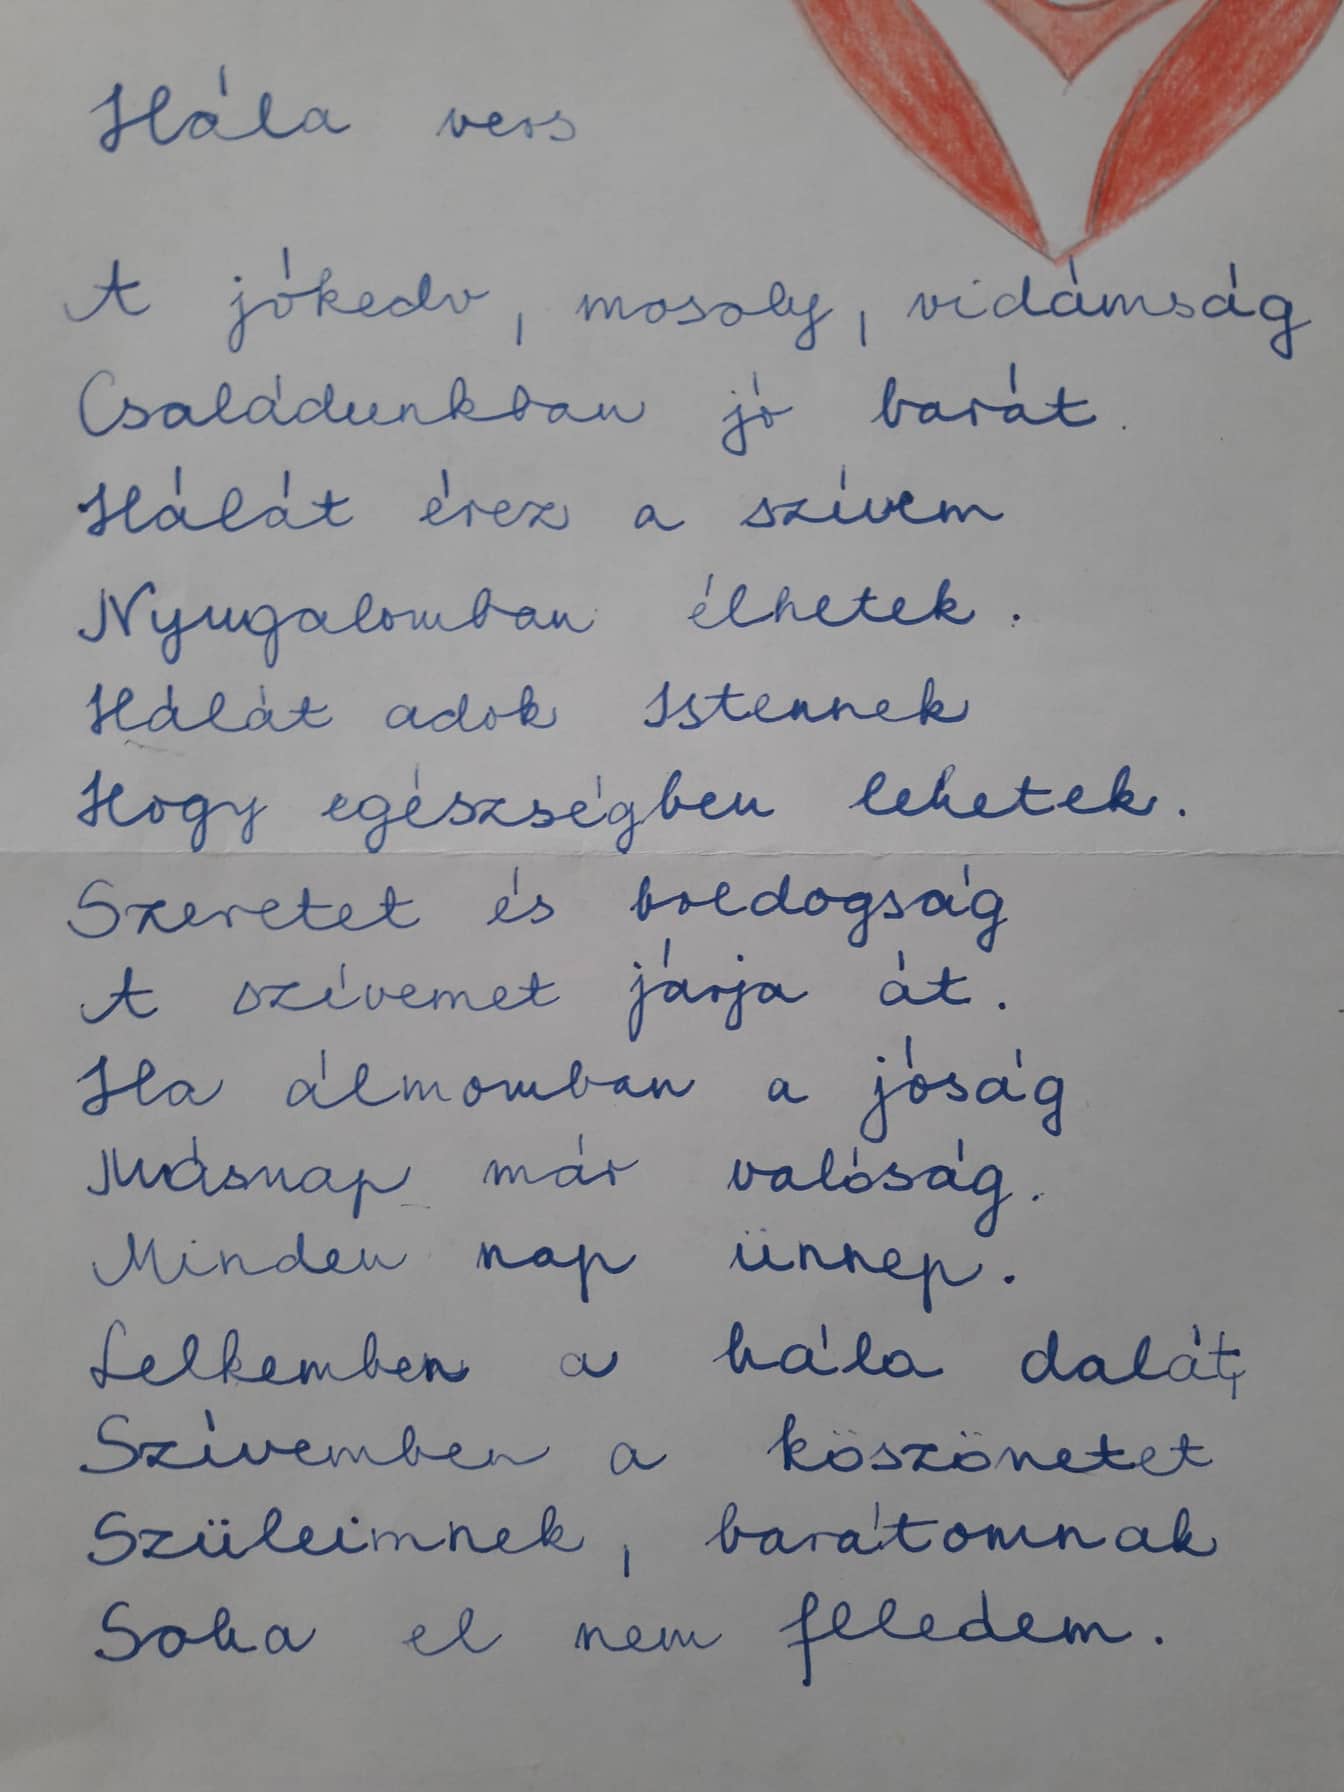 Hála vers
A jókedv, mosoly, vidámság
Családunkban jó barát.
Hálát érez a szívem
Nyugalomban élhetek.
Hálát adok Istennek
Hogy egészségben lehetek.
Szeretet és boldogság
A szívemet járja át.
Ha álmomban a jóság
Másnap már valóság.
Minden nap ünnep.
Lelkemben a hála dalát,
Szívemben a köszönetet
Szüleimnek, barátomnak
Soha el nem feledem.